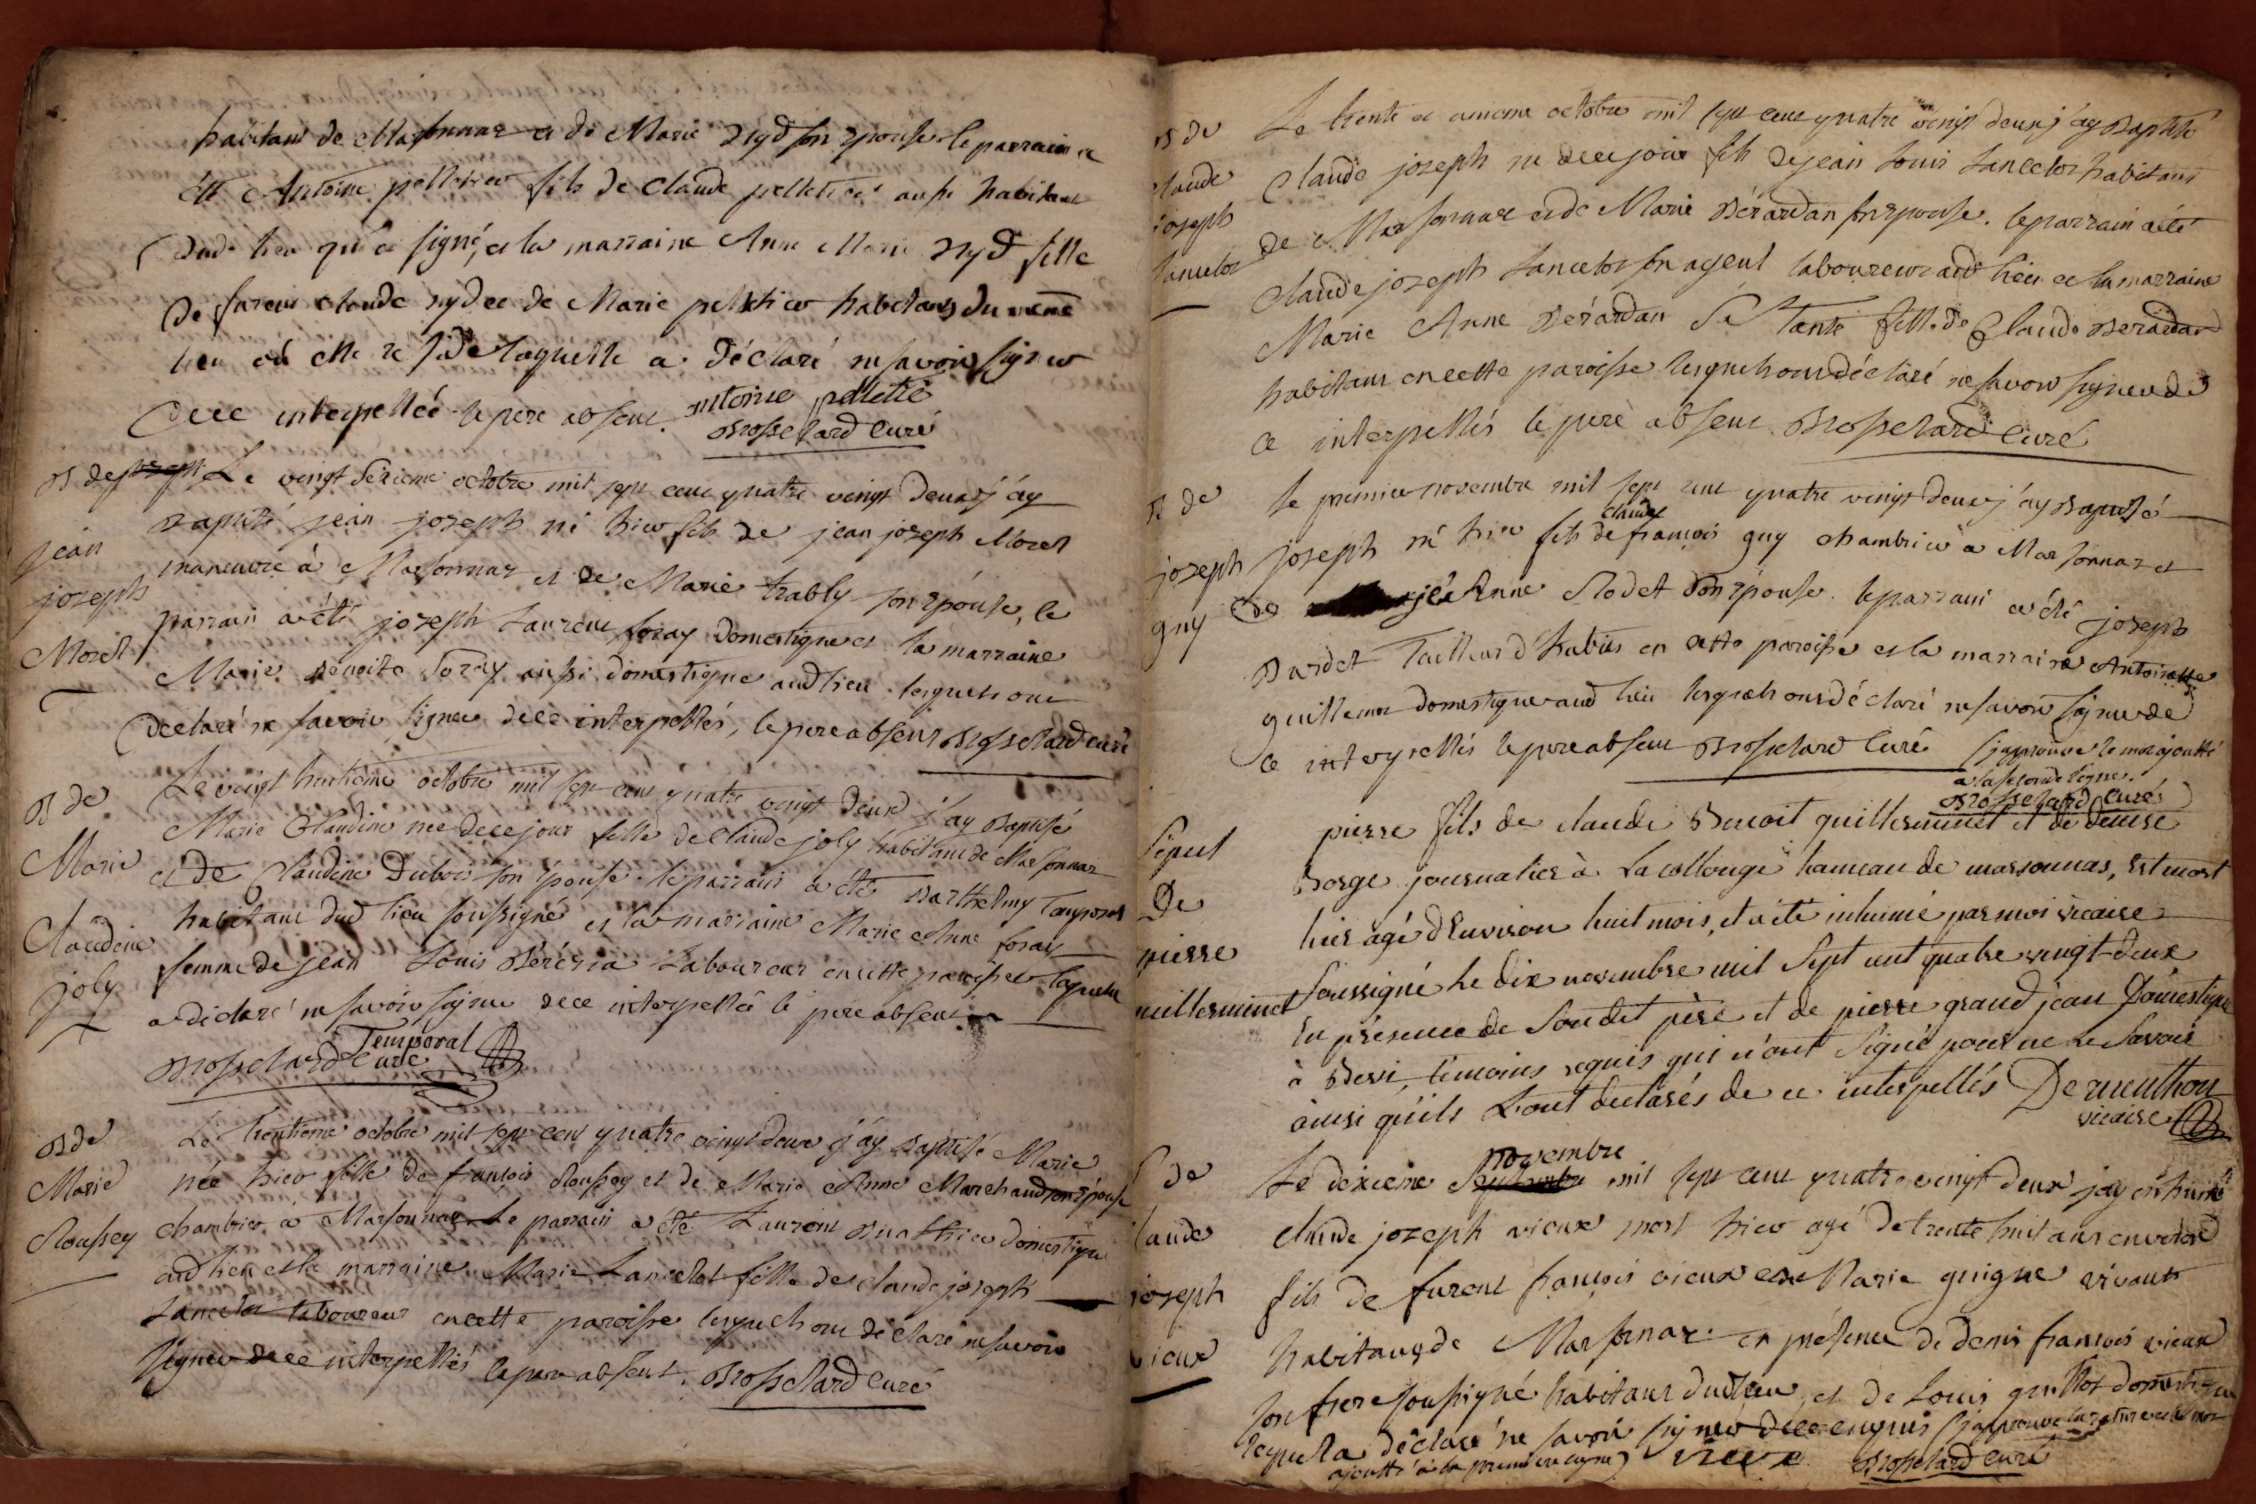 habitant de Marsonnaz et de Marie nyd son épouse le parrain a
été Antoine pelletier fils de Claude pelletier aussi habitant
dud. lieu qui a signé, et la marraine Anne Marie nyd fille
de furent claude nyd et de Marie pelletier habitans du même
lieu où elle réside laquelle a déclaré ne savoir signer
de ce interpellée le pere absent. antoine pelletié
Brosselard Curé
B de Le vingt sixieme octobre mil sept cent quatre vingt deux j'ay
jean baptisé jean joseph né hier fils de jean joseph Morel
joseph maneuvre à Marsonnaz et de Marie trably son épouse, le
Morel parrain a été joseph Laurent foray domestique et la marraine
Marie benoite foray aussi domestique aud lieu lesquels ont
déclaré ne savoir signer de ce interpellés, le pere absent Brosselard curé
B de Le vingt huitieme octobre mil sept cent quatre vingt deux j'ay Baptisé
Marie Marie Claudine née de ce jour fille de Claude joly habitant de Marsonnaz
Claudine et de Claudine Dubois son épouse le parrain a été Barthelmy Temporal
joly habitant dud lieu soussigné et la marraine Marie Anne foray
femme de jean Louis Laboureur en cette paroisse laquelle
a déclaré ne savoir signer de ce interpellée le pere absent
Temporal
Brosselard Curé
B de Le trentieme octobre mil sept cent quatre vingt deux j'ay baptisé Marie
Marie née hier fille de françois Roussey et de Marie Anne Marchand son épouse
Roussey chambrier à Marsonnaz Le parrain a été Laurent Buathier domestique
aud lieu et la marraine Marie Lancelot fille de claude joseph
Lancelot laboureur en cette paroisse lesquels ont déclaré ne savoir
signer de ce interpellés le pere absent. Brosselard Curé
B de Le trente et unieme octobre mil sept cent quatre vingt deux j'ay Baptisé
claude Claude joseph né de ce jour fils de jean Louis Lancelot habitant
joseph de Marsonnaz et de Marie Bérardan son épouse. le parrain a été
lancelot Claude joseph Lancelot son ayeul laboureur aud lieu et la marraine
Marie Anne Bérardan sa tante fille de Claude Berardan
habitant en cette paroisse lesquels ont déclaré ne savoir signer de
ce interpellés le pere absent Brosselard Curé
B de Le premier novembre mil sept cent quatre vingt deux j'ay Baptisé
claude
joseph joseph né hier fils de françois guy chambrier à Marsonnaz et
guy de Anne Rodet son épouse. le parrain a été joseph
Bardet Tailleur d'habits en cette paroisse et la marraine Antoinette
guillemot domestique aud lieu lesquels ont déclaré ne savoir signer de
ce interpellés le pere absent Brosselard Curé (j'approuve le mot ajoutté
a la seconde ligne.
Brosselard Curé)
Sepul pierre fils de claude Benoit guillerminet et de denise
De Borge journalier à La collonge hameau de marsonnas, est mort
pierre hier agé d'Environ huit mois, et a été inhumé par moi vicaire
guillerminet soussigné Le dix novembre mil Sept cent quatre vingt-deux
En présence de son dit père et de pierre grand jean Domestique
à Besi, témoins requis qui n'ont signé pour ne Le Savoir
ainsi qu'ils L'ont déclarés de ce interpellés Dementhon
vicaire
novembre
S de Le dixieme mil sept cent quatre vingt deux j'ay enhumé
claude claude joseph vieux mort hier agé de trente huit ans environ
joseph fils de furent françois vieux et de Marie guigue vivants
vieux habitans de Marsonnaz. en présence de denis francois vieux
son frere soussigné habitant dud lieu, et de Louis guillot domestique
lequel a déclaré ne savoir signer de ce enquis (j'approuve la rature et le mot
ajoutté à la premiere ligne) vieux Brosselard Curé